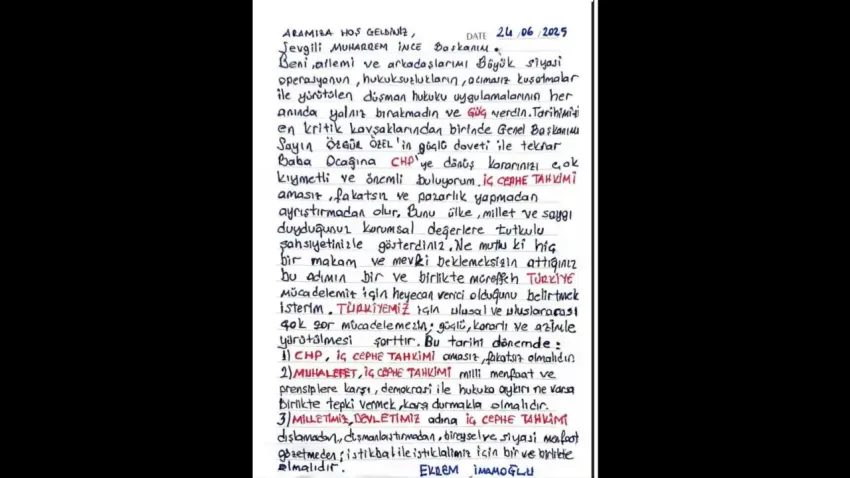 ARAMIZA HOŞ GELDİNİZ,
DATE 24/06/2025
Sevgili MUHARREM İNCE Başkanım.
Beni, ailemi ve arkadaşlarımı Büyük siyasi
operasyonun, hukuksuzlukların, acımasız kuşatmalar
ile yürütülen düşman hukuku uygulamalarının her
anında yalnız bırakmadın ve GÜÇ verdin. Tarihimizi
en kritik kavşaklarından birinde Genel Başkanımı
Sayın ÖZGÜR ÖZEL'in güçlü daveti ile tekrar
Baba Ocağına CHP'ye dönüş kararınızı çok
kıymetli ve önemli buluyorum. İÇ CEPHE TAHKİMİ
amasız, fakatsız ve pazarlık yapmadan
ayrıştırmadan olur. Bunu ülke, millet ve saygı
duyduğunuz kurumsal değerlere tutkulu
şahsiyetinizle gösterdiniz. Ne mutlu ki hiç
bir makam ve mevki beklemeksizin attığınız
bu adımın bir ve birlikte müreffeh TÜRKİYE
mücadelemiz için heyecan verici olduğunu belirtmek
isterim. TÜRKİYEMİZ için ulusal ve uluslararası
çok zor mücadelemizin; güçlü, kararlı ve azimle
yürütülmesi şarttır. Bu tarihi dönemde:
1) CHP, İÇ CEPHE TAHKİMİ amasız, fakatsız olmalıdır
2) MUHALEFET, İÇ CEPHE TAHKİMİ milli menfaat ve
prensiplere karşı, demokrasi ile hukuka aykırı ne varsa
Birlikte tepki vermek, karşı durmakla olmalıdır.
3) MİLLETİMİZ, DEVLETİMİZ adına İÇ CEPHE TAHKİMİ
dışlamadan, düşmanlaştırmadan, bireysel ve siyasi menfaat
gözetmeden; istikbal ile istiklalimiz için bir ve birlikte
olmalıdır.
EKREM İMAMOĞLU